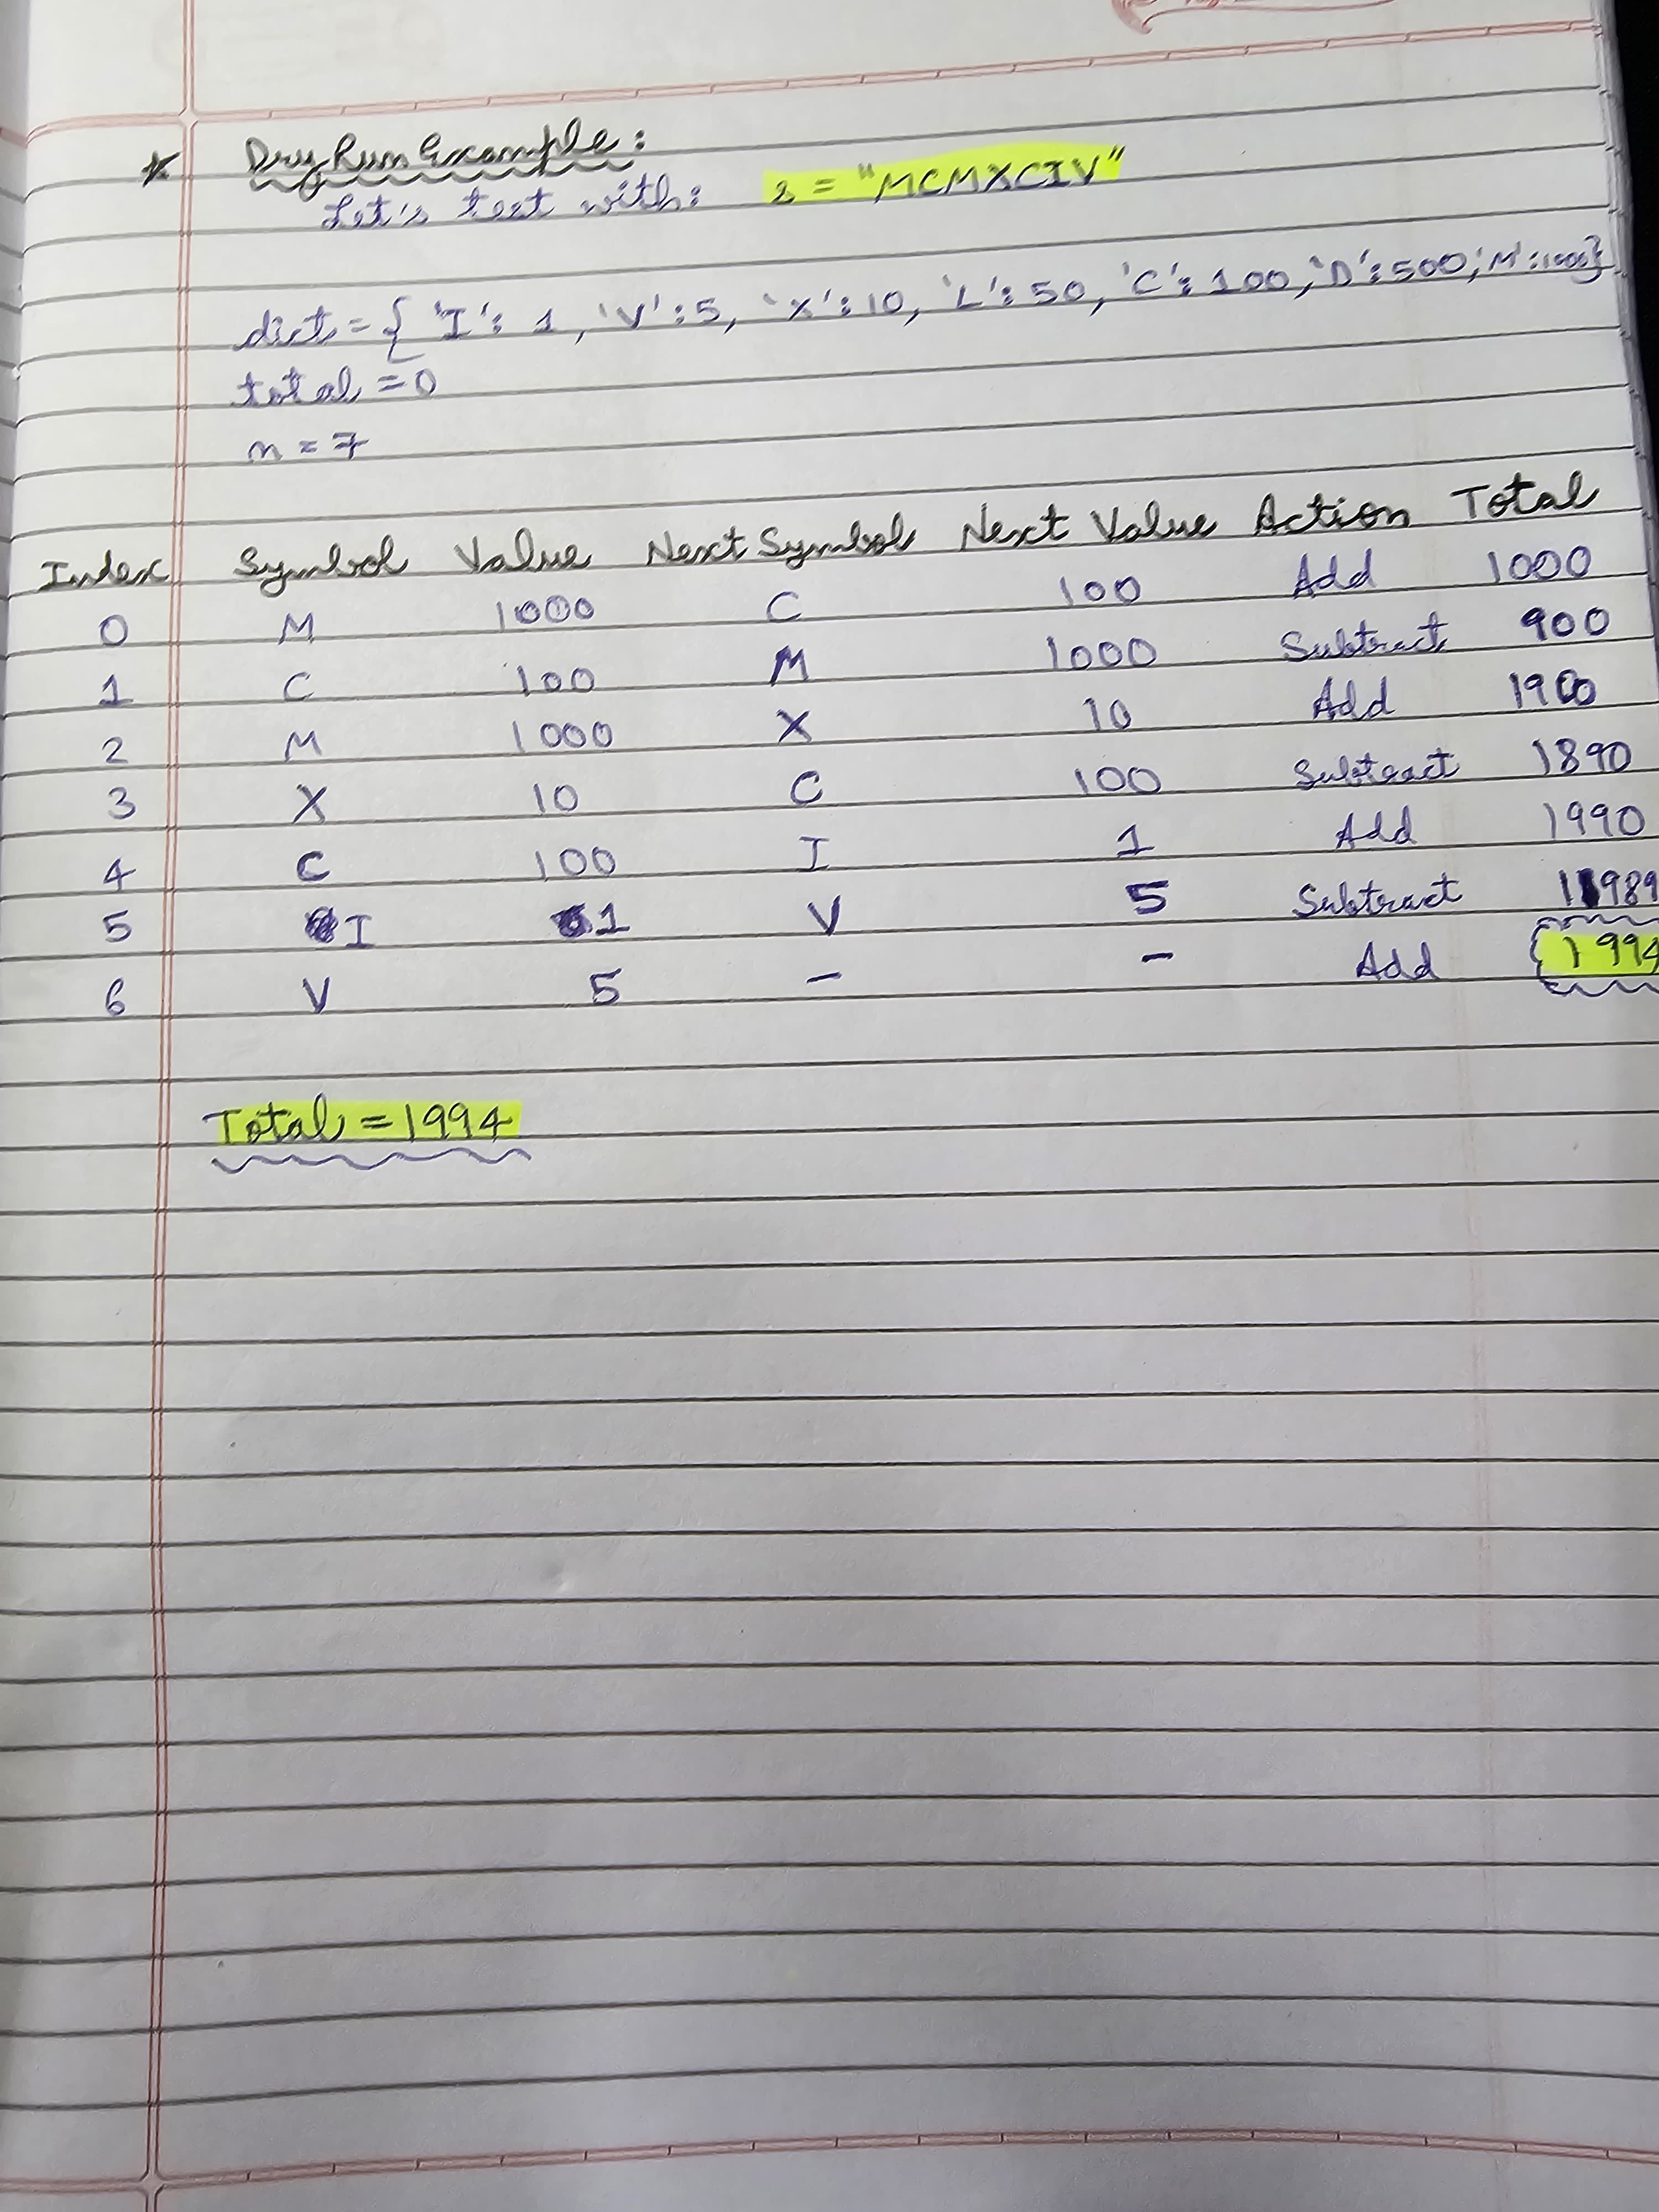 * Dry Run Example:
Let's test with: s = "MCMXCIV"
dict = { 'I': 1, 'V': 5, 'X': 10, 'L': 50, 'C': 100, 'D': 500, 'M': 1000}
total = 0
n = 7
Index Symbol Value Next Symbol Next Value Action Total
0 M 1000 C 100 Add 1000
1 C 100 M 1000 Subtract 900
2 M 1000 X 10 Add 1900
3 X 10 C 100 Subtract 1890
4 C 100 I 1 Add 1990
5 I 1 V 5 Subtract 1989
6 V 5 - - Add 1994
Total = 1994